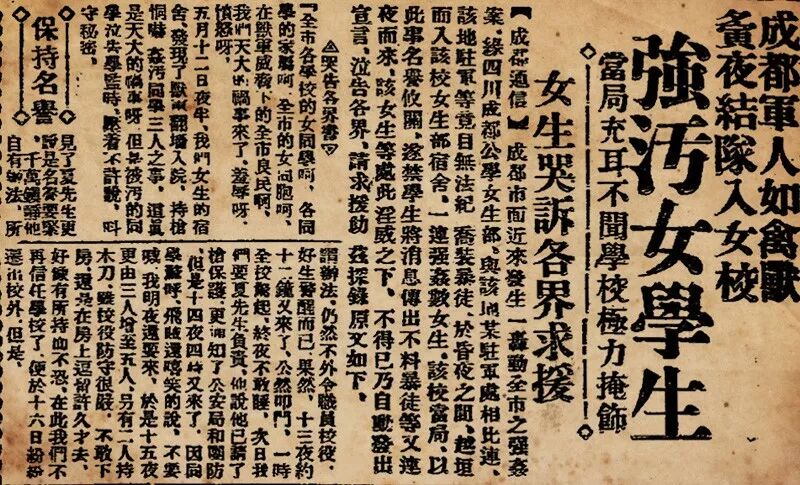 成都軍人如禽獸
黃夜結隊入女校
強污女學生
當局充耳不聞學校極力掩飾
女生哭訴各界求援
【成都通信】成都市面近來發生一轟動全市之强姦
案、緣四川成都公學女生部、與該地某駐軍處相比連、
該地駐軍等竟目無法紀、喬裝暴徒、於昏夜之間、越垣
而入該校女生部宿舍、一連强姦數女生。該校當局、以
此事名譽攸關、遂禁學生將消息傳出不料暴徒等又連
夜而來、該女生等處此淫威之下、不得已乃自動發出
宣言、泣告各界、請求援助、茲探錄原文如下、
哀告各界書
『全市各學校的女同學呵、各同
學的家屬呵、全市的女同胞呵、
在獸軍威務下的全市良民呵、
我們天大的禍事來了、羞辱呀、
憤怒呀、
五月十二日夜半、我們女生的宿
舍、發現了獸軍翻墻入院、持槍
恫嚇、姦污同學三人之事、這真
是天大的禍事呀、但是被污的同
學泣告學監時、壓着不許說、叫
守秘密、
保持名譽
見了夏先生更
說是名譽要緊
、千萬鎮靜他
自有辦法、所
謂辦法、仍然不外令職員校役、
好生警醒而已、果然、十三夜約
十一鐘又來了、公然叩門、一時
全校驚起、終夜不敢睡、次日我
們要夏先生負責、他說他已請了
槍保護、更通知了公安局和團防
、但是十四夜四時又來了、因同
學驚呼、飛賊還嘻笑的說、不要
喊、我明夜還要來、於是十五夜
更由三人增至五人、另有二人持
木刀、雖校役防守很嚴、不敢下
房、還是在房上逗留許久才去、
好像有所恃而不恐、在此我們不
再信任學校了、便於十六日紛紛
遷出校外、但是、